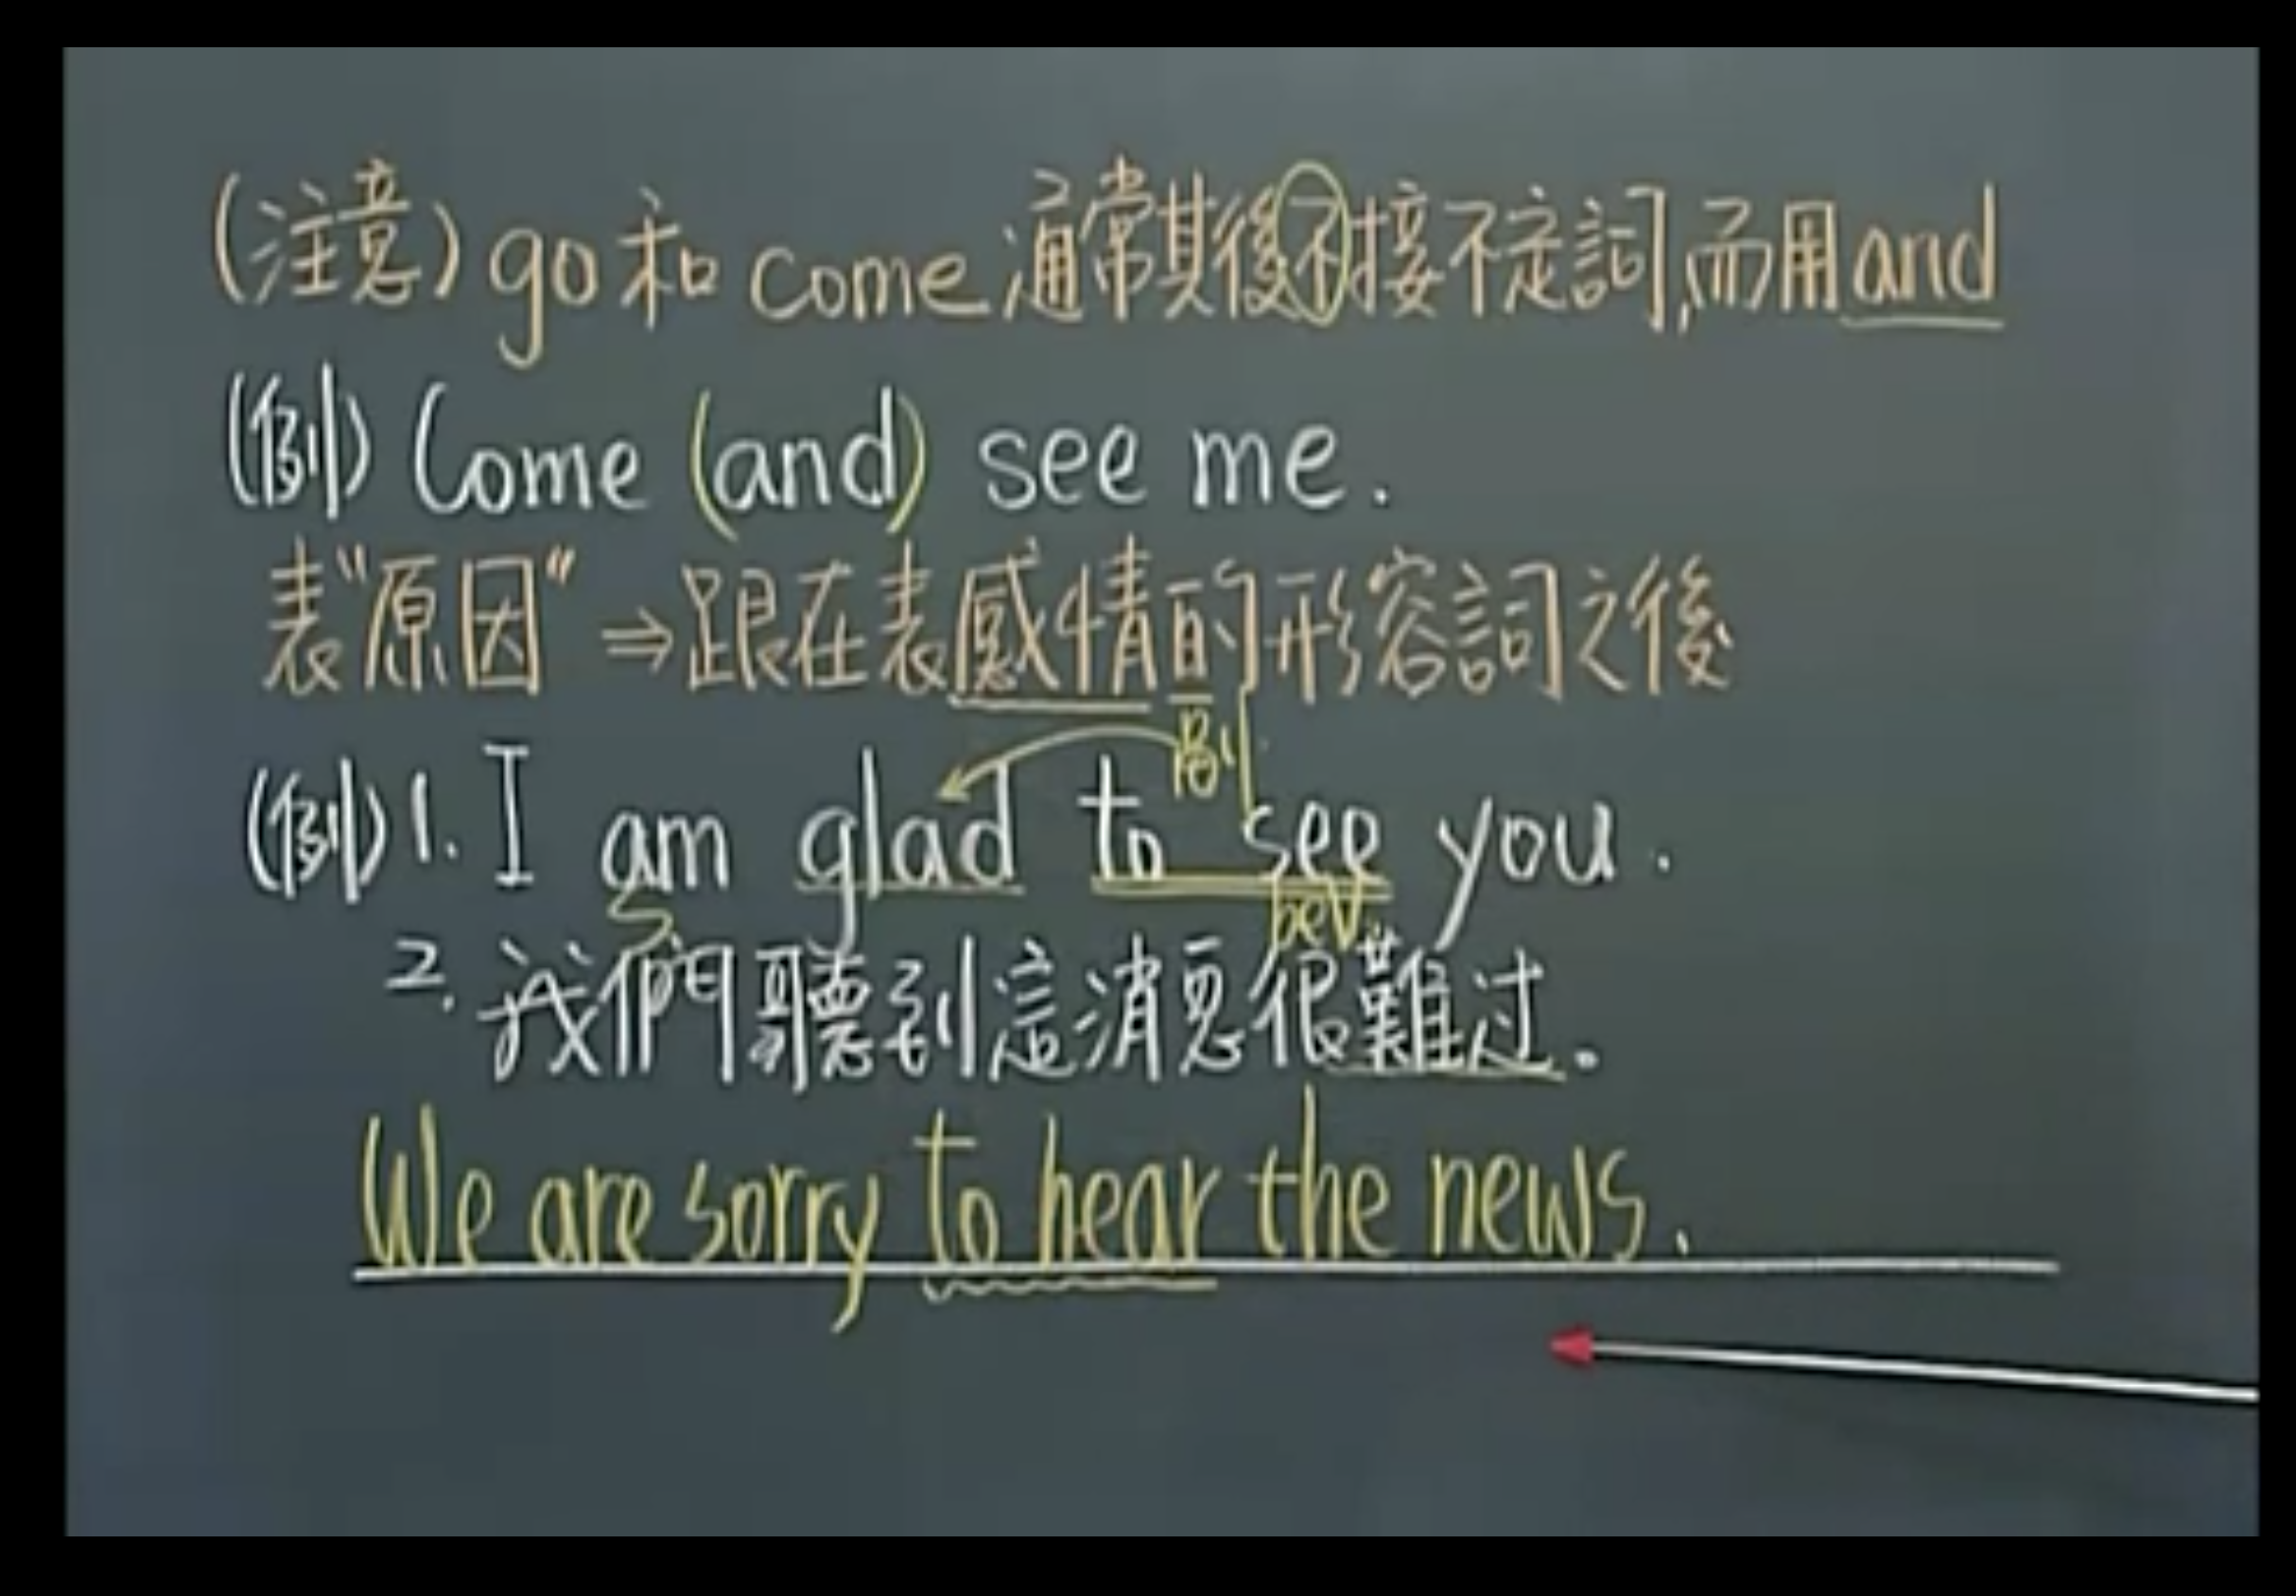 (注意) go 和 come 通常其後不接不定詞,而用 and
(例) Come (and) see me.
表"原因" ⇒ 跟在表感情的形容詞之後
副
(例) 1. I am glad to see you.
2. 我們聽到這消息很難过。
We are sorry to hear the news.